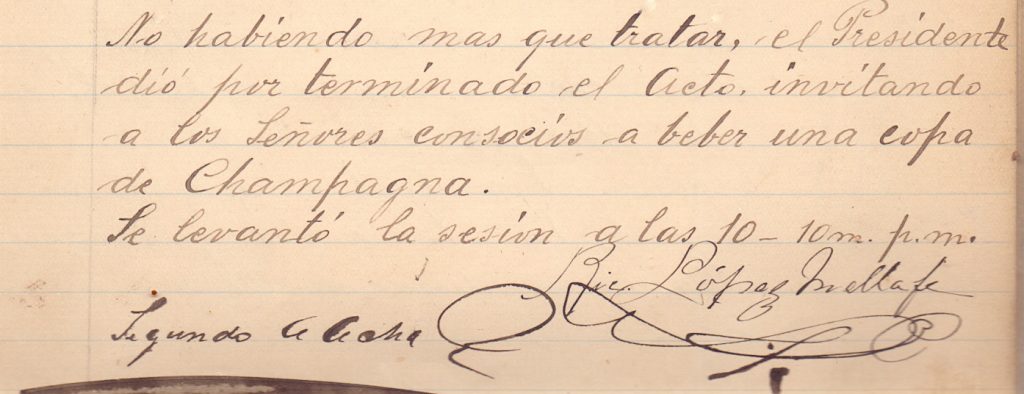 No habiendo mas que tratar, el Presidente
dió por terminado el Acto, invitando
a los Señores consocios a beber una copa
de Champagna.
Se levantó la sesion a las 10 - 10 m. p.m.
Ric. López Mellafe
Segundo A Acha